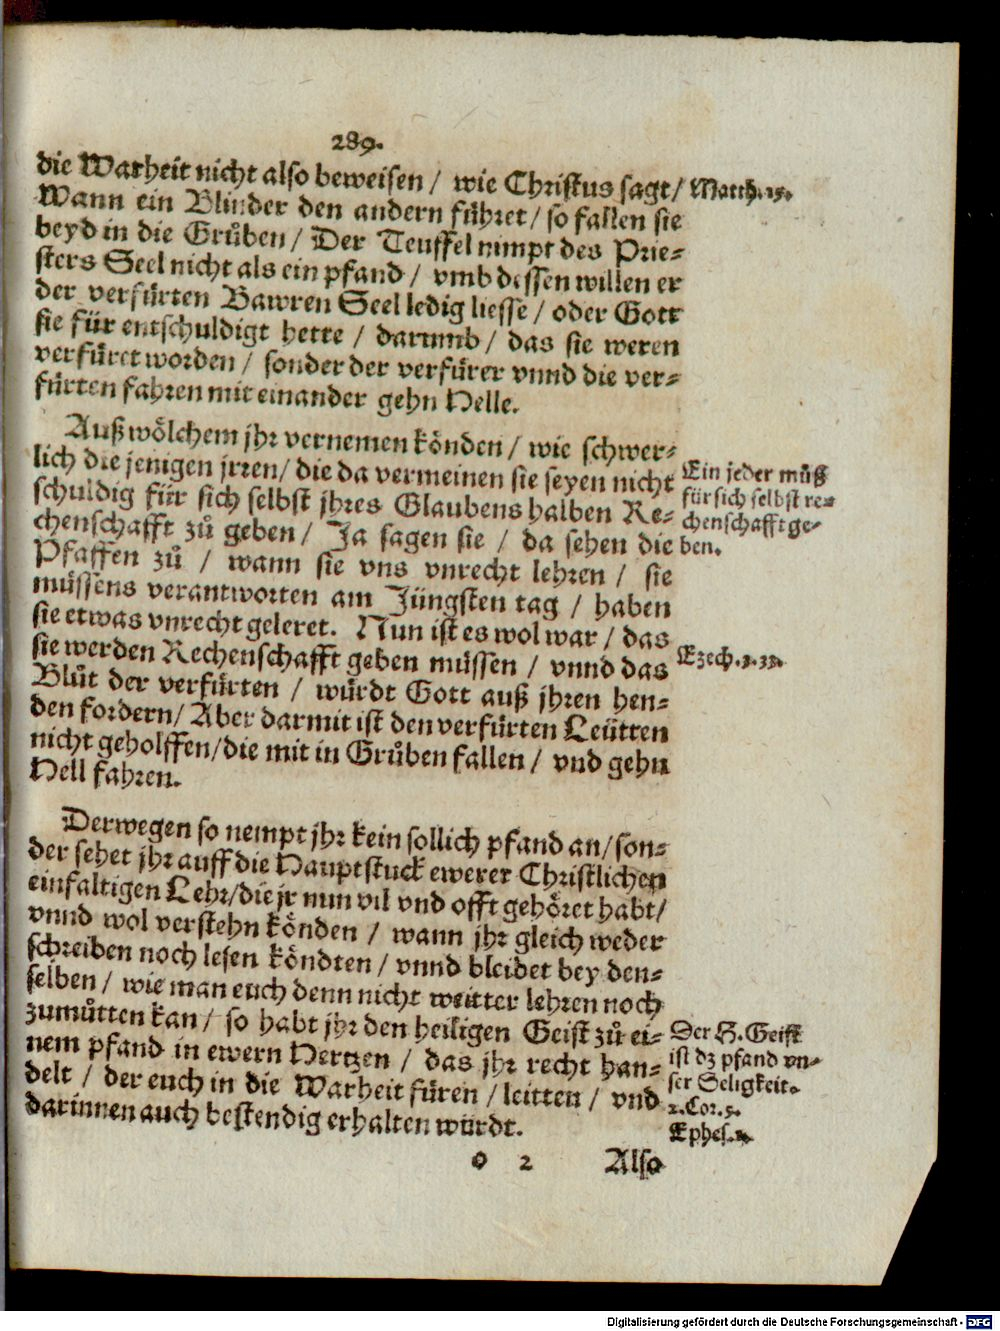 289.
die Warheit nicht also beweisen / wie Christus sagt /
Matth. 15.
Wann ein Blinder den andern fůhret / so fallen sie
beyd in die Grůben / Der Teuffel nimpt des Prie-
sters Seel nicht als ein pfand / vmb dessen willen er
der verfürten Bawren Seel ledig liesse / oder Gott
sie für entschuldigt hette / darumb / das sie weren
verfüret worden / sonder der verfürer vnnd die ver-
fürten fahren mit einander gehn Helle.
Auß wölchem jhr vernemen könden / wie schwer-
lich die jenigen jrren / die da vermeinen sie seyen nicht
schuldig für sich selbst jhres Glaubens halben Re-
chenschafft zů geben / Ja sagen sie / da sehen die
Pfaffen zů / wann sie vns vnrecht lehren / sie
müssens verantworten am Jüngsten tag / haben
sie etwas vnrecht geleret. Nun ist es wol war / das
sie werden Rechenschafft geben müssen / vnnd das
Blůt der verfürten / würdt Gott auß jhren hen-
den fordern / Aber darmit ist den verfürten Leütten
nicht geholffen / die mit in Grůben fallen / vnd gehn
Hell fahren.
Ein jeder můß
für sich selbst re-
chenschafft ge-
ben.
Ezech. 3. 33.
Derwegen so nempt jhr kein sollich pfand an / son-
der sehet jhr auff die Hauptstuck ewerer Christlichen
einfaltigen Lehr / die jr nun vil vnd offt gehöret habt /
vnnd wol verstehn könden / wann jhr gleich weder
schreiben noch lesen köndten / vnnd bleibet bey den-
selben / wie man euch denn nicht weitter lehren noch
zumůtten kan / so habt jhr den heiligen Geist zů ei-
nem pfand in ewern Hertzen / das jhr recht han-
delt / der euch in die Warheit füren / leitten / vnd
darinnen auch bestendig erhalten würdt.
Der H. Geist
ist dz pfand vn-
ser Seligkeit.
2. Cor. 5.
Ephes. 1.
o 2 Also
Digitalisierung gefördert durch die Deutsche Forschungsgemeinschaft - DFG